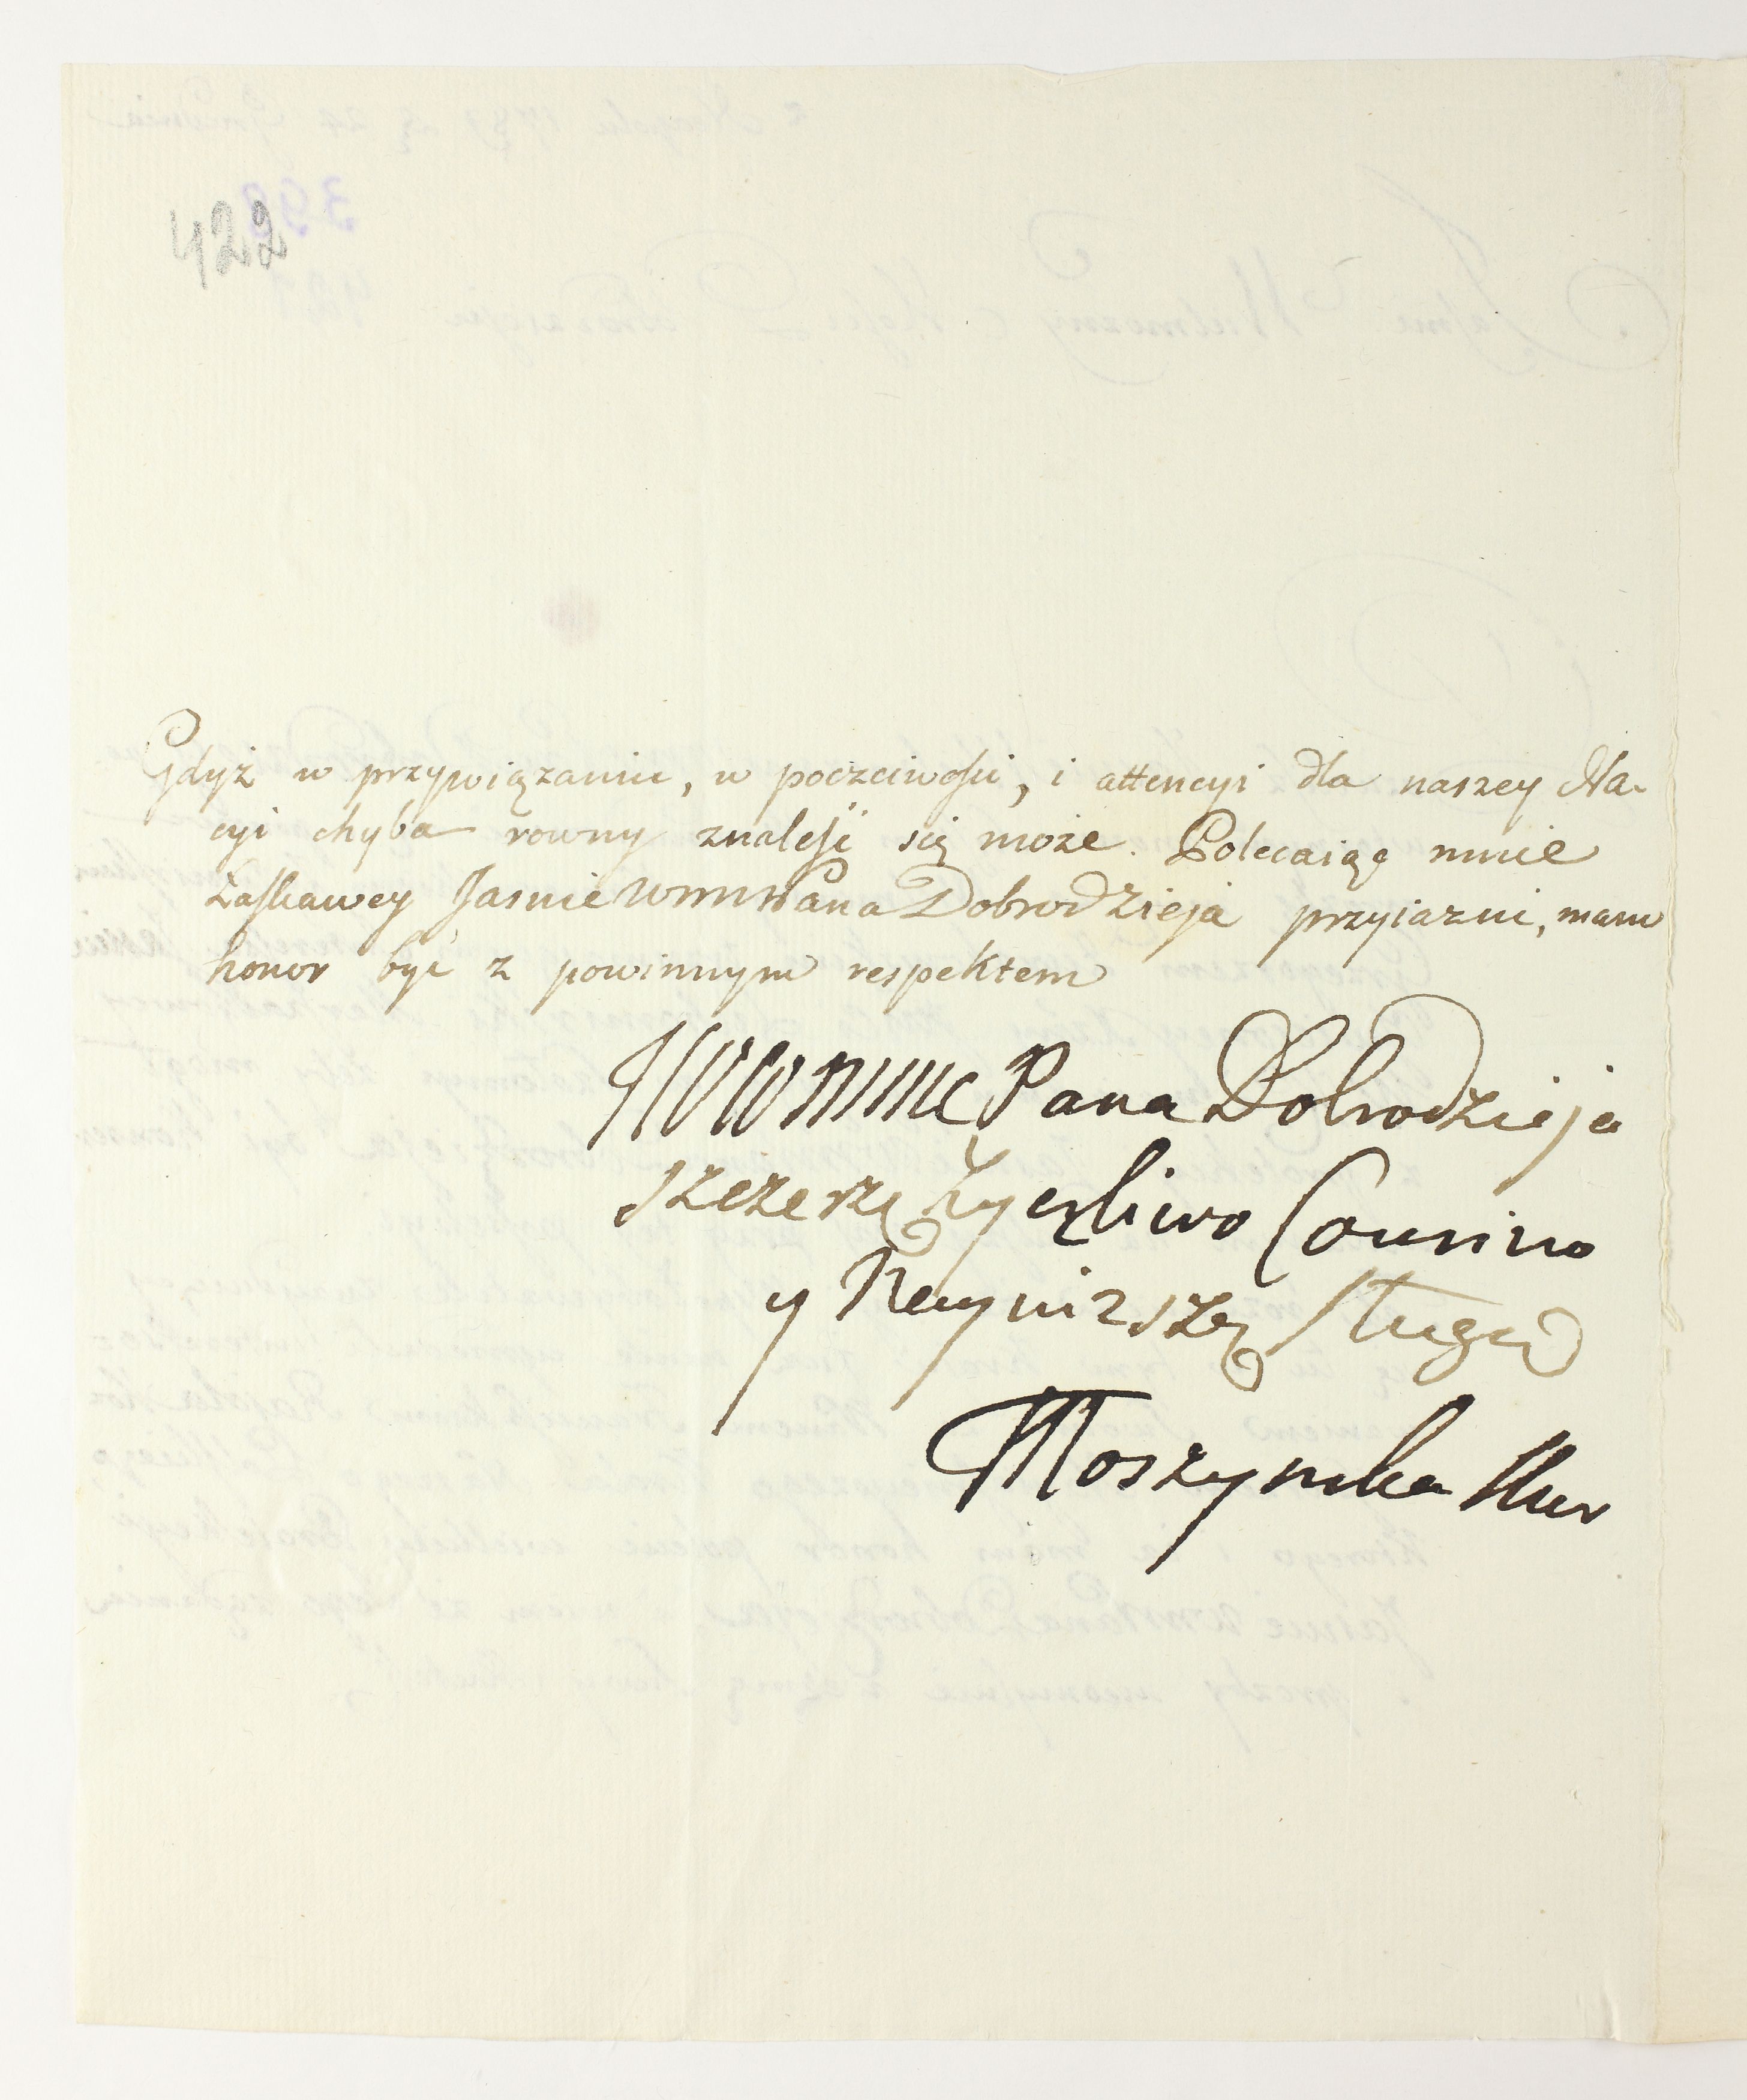 422
Gdyż w przywiązaniu, w poczciwości, i attencyi dla naszey Na-
cyi chyba rowny znaleść się może. Polecaiąc mnie
Łaskawey Jasnie WMMPana Dobrodzieja przyiazni, mam
honor być z powinnym respektem
Pana Dobrodzieja
szczerze życzliwo Cousino
y Nayniższo Sługo
Moszynska